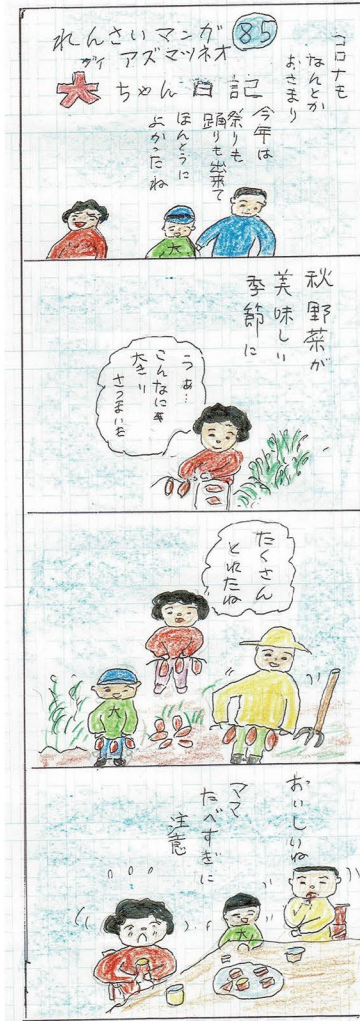 れんさいマンガ 85
ガイ アズマツネオ
大ちゃん日記
コロナも
なんとか
おさまり
今年は
祭りも
踊りも出来て
ほんとうに
よかったね
大
秋野菜が
美味しい
季節に
うぁ…
こんなに
大きい
さつまいも
たくさん
とれたね
大
おいしいね
ママ
たべすぎに
注意
大